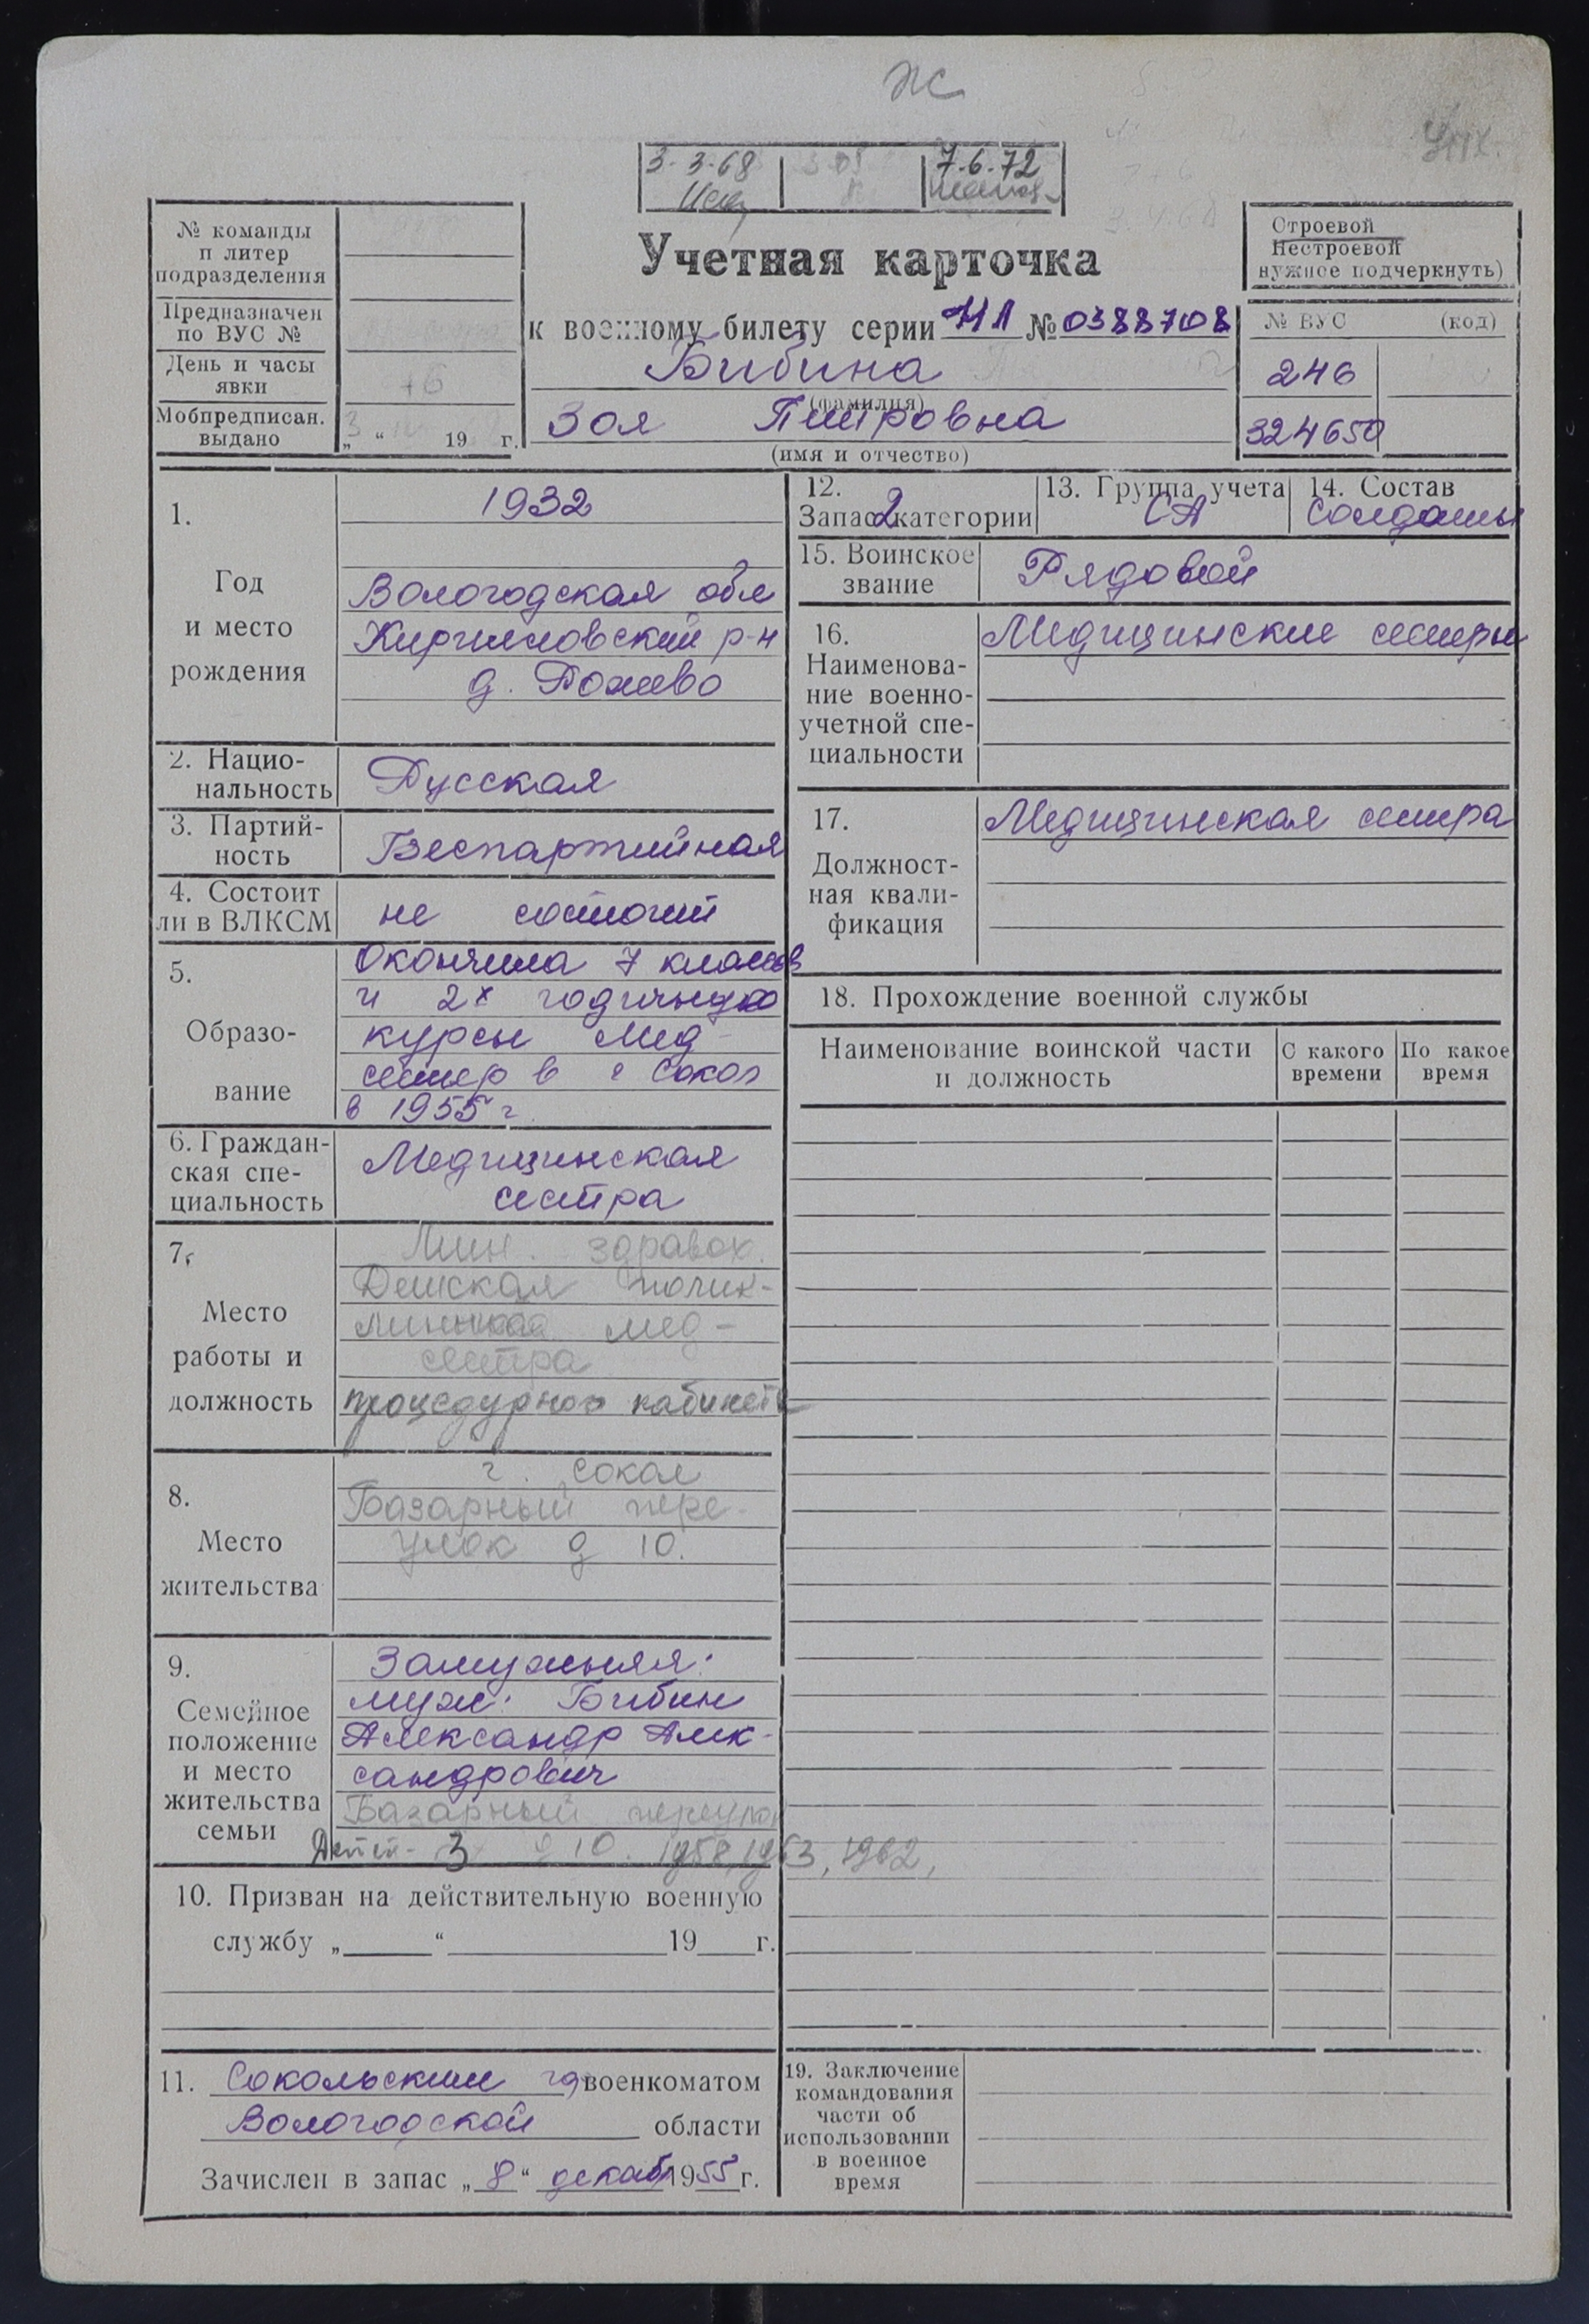 Ж
3.3.68
7.6.72
№ команды
п литер
подразделения
Предназначен
по ВУС №
День и часы
явки
Мобпредписан.
выдано
„ “ 19 г.
Учетная карточка
к военному билету серии НЛ № 0388708
Бибина
(фамилия)
Зоя Петровна
(имя и отчество)
Строевой
Нестроевой
нужное подчеркнуть)
№ ВУС (код)
246
324650
1.
Год
и место
рождения
1932
Вологодская обл
Кирилловский р-н
д.
2. Нацио-
нальность
Русская
3. Партий-
ность
Беспартийная
4. Состоит
ли в ВЛКСМ
не состоит
5.
Образо-
вание
Окончила 7 классов
и 2х годичную
курсы мед-
сестер в г Сокол
в 1955 г.
6. Граждан-
ская спе-
циальность
Медицинская
сестра
7.
Место
работы и
должность
Мин. здравох.
Детская полик-
мед-
сестра
процедурного кабинета
8.
Место
жительства
г. Сокол
Базарный пере-
улок д 10.
9.
Семейное
положение
и место
жительства
семьи
Замужняя:
муж: Бибин
Александр Алек-
сандрович
Базарный переулок
Дети- 3 д 10. 1958, 1963, 1962,
10. Призван на действительную военную
службу „ “ 19 г.
11. Сокольским го военкоматом
Вологодской области
Зачислен в запас „ 8 “ декаб 1955 г.
12.
Запас 2 категории
13. Группа учета
СА
14. Состав
Солдаты
15. Воинское
звание
Рядовой
16.
Наименова-
ние военно-
учетной спе-
циальности
Медицинские сестры
17.
Должност-
ная квали-
фикация
Медицинская сестра
18. Прохождение военной службы
Наименование воинской части
и должность
С какого
времени
По какое
время
19. Заключение
командования
части об
использовании
в военное
время